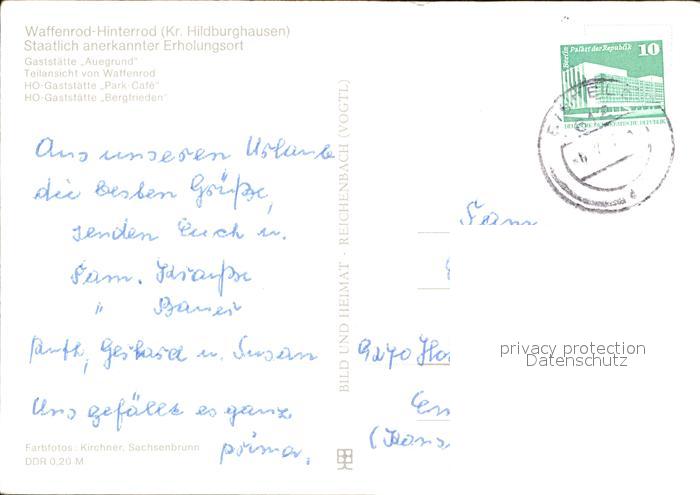 Waffenrod-Hinterrod (Kr. Hildburghausen)
Staatlich anerkannter Erholungsort
Gaststätte „Auegrund"
Teilansicht von Waffenrod
HO-Gaststätte „Park-Café"
HO-Gaststätte „Bergfrieden"
Aus unseren Urlaube
die besten Grüße,
senden Euch u.
Fam. Krauße
" Bauer
Ruth, Gerhard u. Susan
Uns gefällt es ganz
prima.
Farbfotos: Kirchner, Sachsenbrunn
DDR 0,20 M
BILD UND HEIMAT · REICHENBACH (VOGTL)
Berlin Palast der Republik 10
DEUTSCHE DEMOKRATISCHE REPUBLIK
Fam
9270
privacy protection
Datenschutz